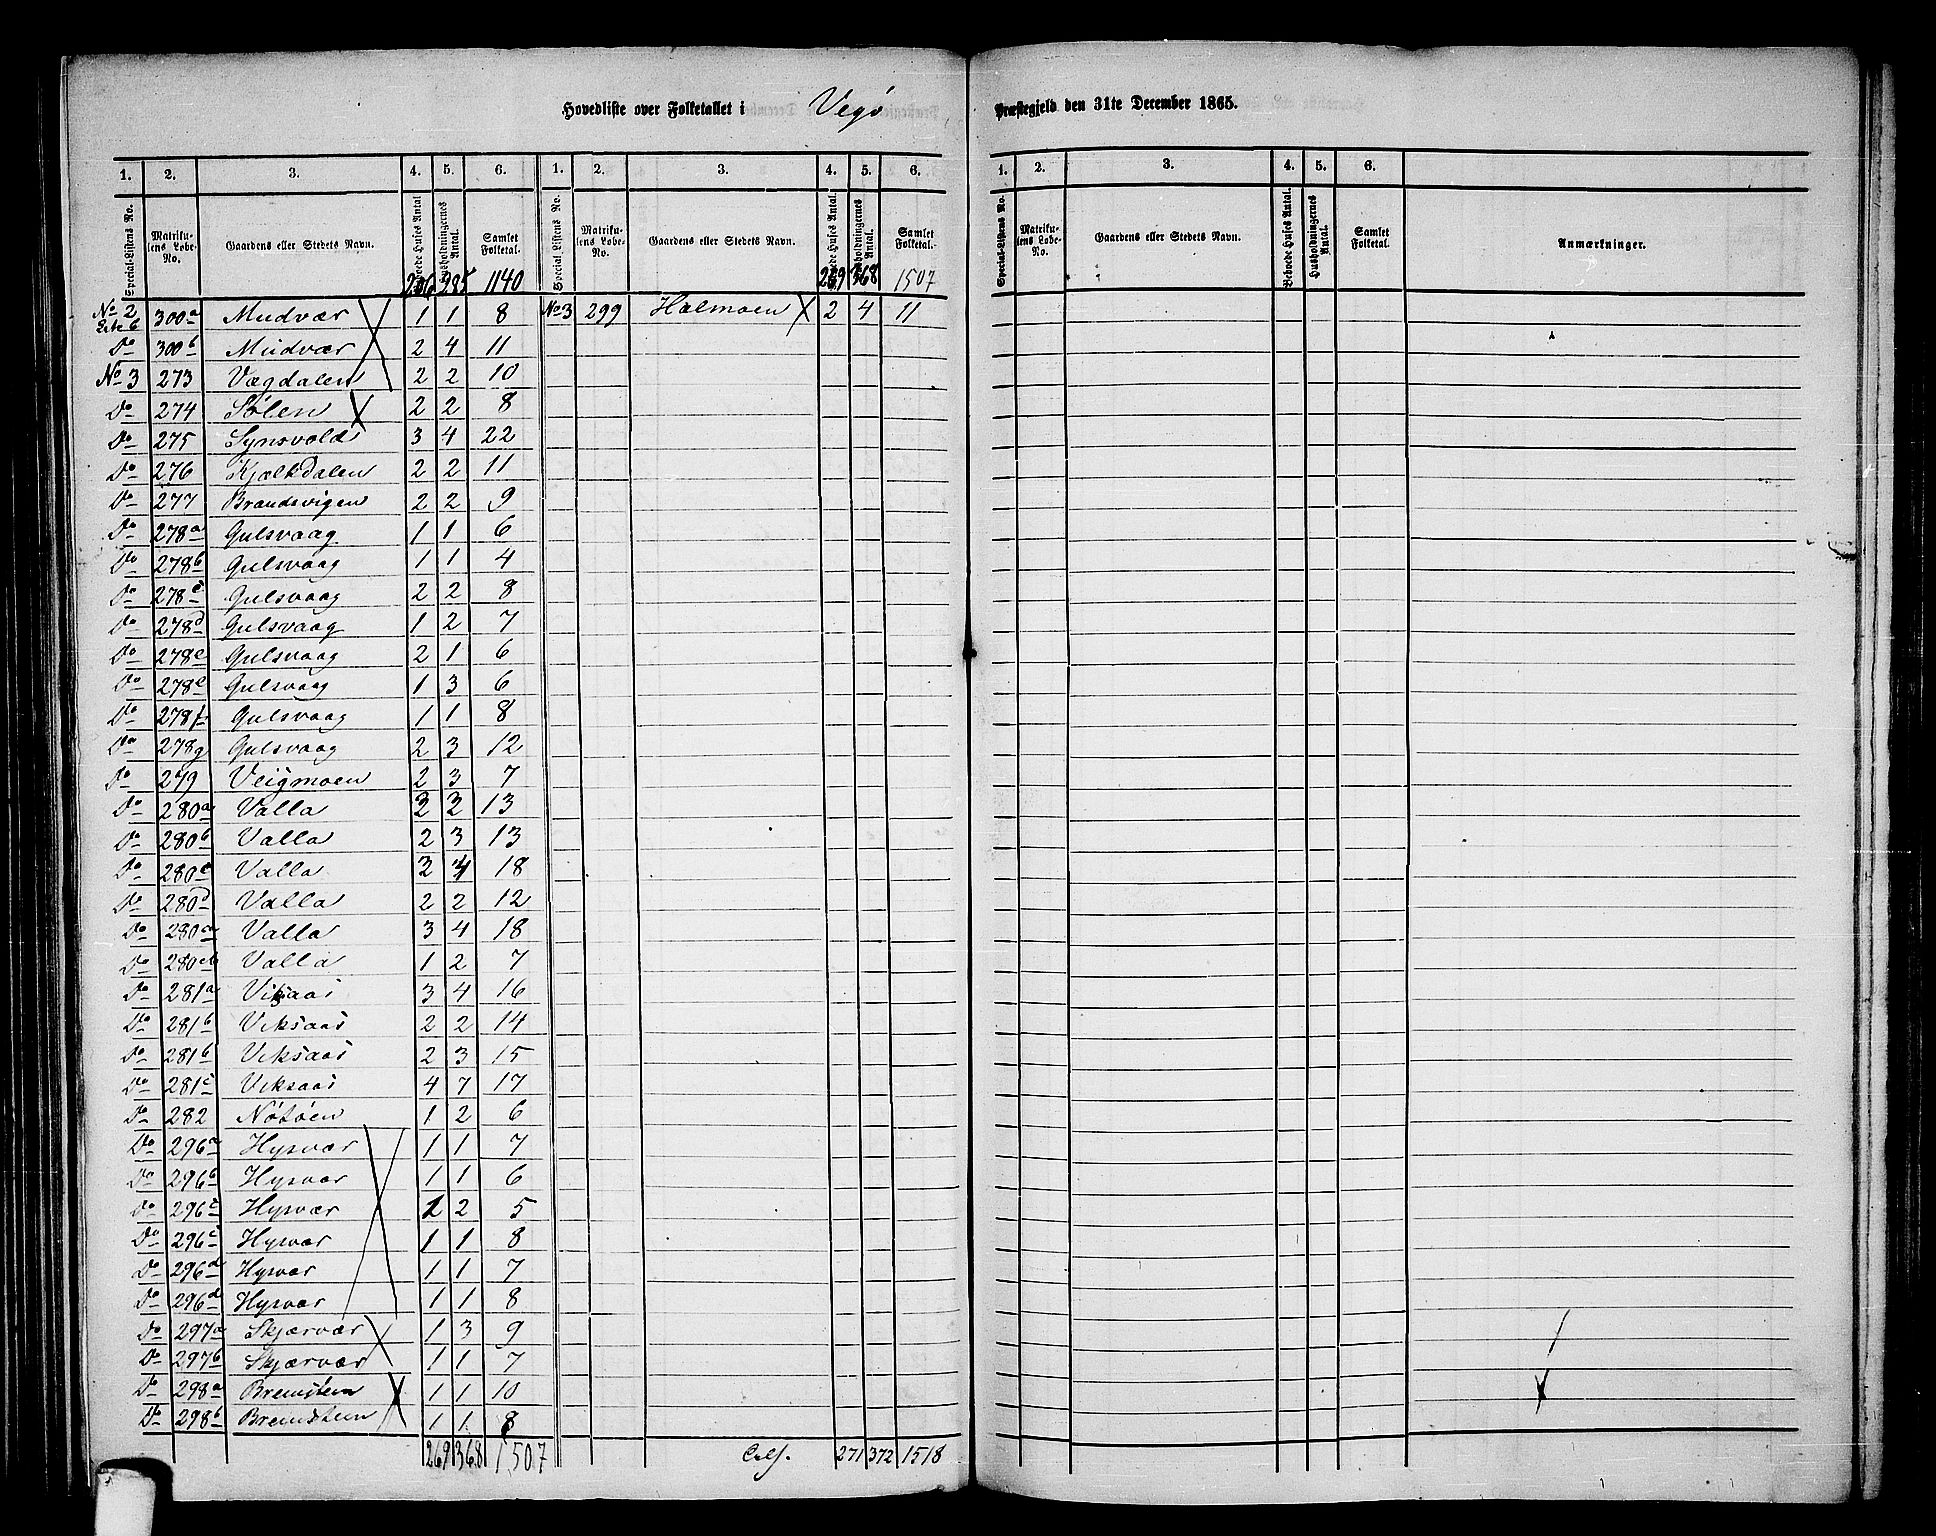 Hovedliste over Folketallet i Vegø Præstegjeld den 31te December 1865.
1. 2. 3. 4. 5. 6. 1. 2. 3. 4. 5. 6.
Special-Listens No. Matrikulens Løbe-No. Gaardens eller Stedets Navn. Beboede Huses Antal. Husholdningernes Antal. Samlet Folketal. Special Listens No. Matrikulens Løbe-No. Gaardens eller Stedets Navn. Beboede Huses Antal. Husholdningernes Antal. Samlet Folketal.
285 1140 269 368 1507
No 2 300a Mudvær 1 1 8 No 3 299 Holmoen X 2 4 11
Do 300b Mudvær 2 4 11
No 3 273 Vægdalen 2 2 10
Do 274 Sølen X 2 2 8
Do 275 Synsvold 3 4 22
Do 276 Kjælkdalen 2 2 11
Do 277 Brandsvigen 2 2 9
Do 278a Gulsvaag 1 1 6
Do 278b Gulsvaag 1 1 4
Do 278c Gulsvaag 2 2 8
Do 278d Gulsvaag 1 2 7
Do 278e Gulsvaag 2 1 6
Do 278e Gulsvaag 1 3 6
Do 278f Gulsvaag 1 1 8
Do 278g Gulsvaag 2 3 12
Do 279 Veigmoen 2 3 7
Do 280a Valla 13
Do 280b Valla 2 3 13
Do 280c Valla 18
Do 280d Valla 2 2 12
Do Valla 3 4 18
Do Valla 1 2 7
Do 281a Viksaas 3 4 16
Do 281b Viksaas 2 2 14
Do 281b Viksaas 2 3 15
Do 281c Viksaas 4 7 17
Do 282 Nøtøen 1 2 6
Do 296a Hysvær 1 1 7
Do 296b Hysvær 1 1 6
Do 296c Hysvær 1 2 5
Do 296c Hysvær 1 1 8
Do 296d Hysvær 1 1 7
Do 296d Hysvær 1 1 8
Do 297a Skjærvær 1 3 9
Do 297b Skjærvær 1 1 7
Do 298a Bremsteen 1 1 10
Do 298b Bremsteen 1 1 8
269 368 1507 271 372 1518
1. 2. 3. 4. 5. 6.
Special-Listens No. Matrikulens Løbe-No. Gaardens eller Stedets Navn. Beboede Huses Antal. Husholdningernes Antal. Samlet Folketal. Anmærkninger.